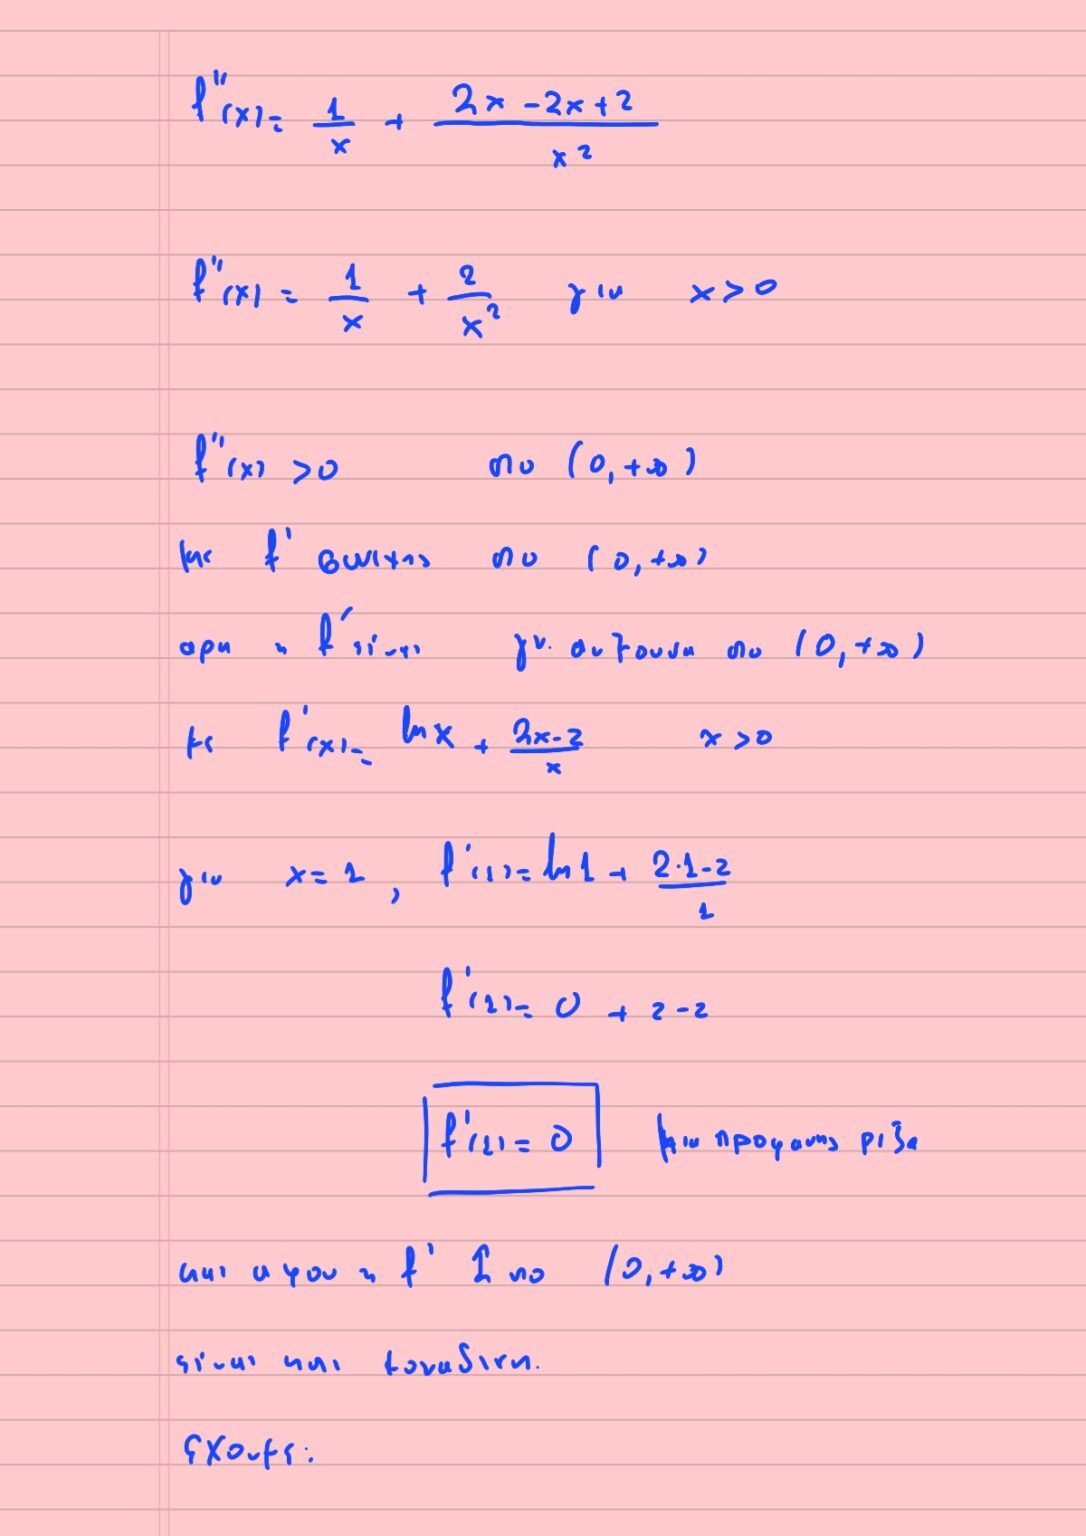 f''(x) = 1/x + (2x - 2x + 2)/x²
f''(x) = 1/x + 2/x² για x > 0
f''(x) > 0 στο (0, +∞)
με f' συνεχης στο (0, +∞)
αρα η f' είναι γν. αυξουσα στο (0, +∞)
με f'(x) = ln x + (2x-2)/x x > 0
για x = 1, f'(1) = ln 1 + (2·1-2)/1
f'(1) = 0 + 2-2
f'(1) = 0 μια προφανης ριζα
και αφου η f' ↑ στο (0, +∞)
είναι και μοναδικη.
εχουμε: